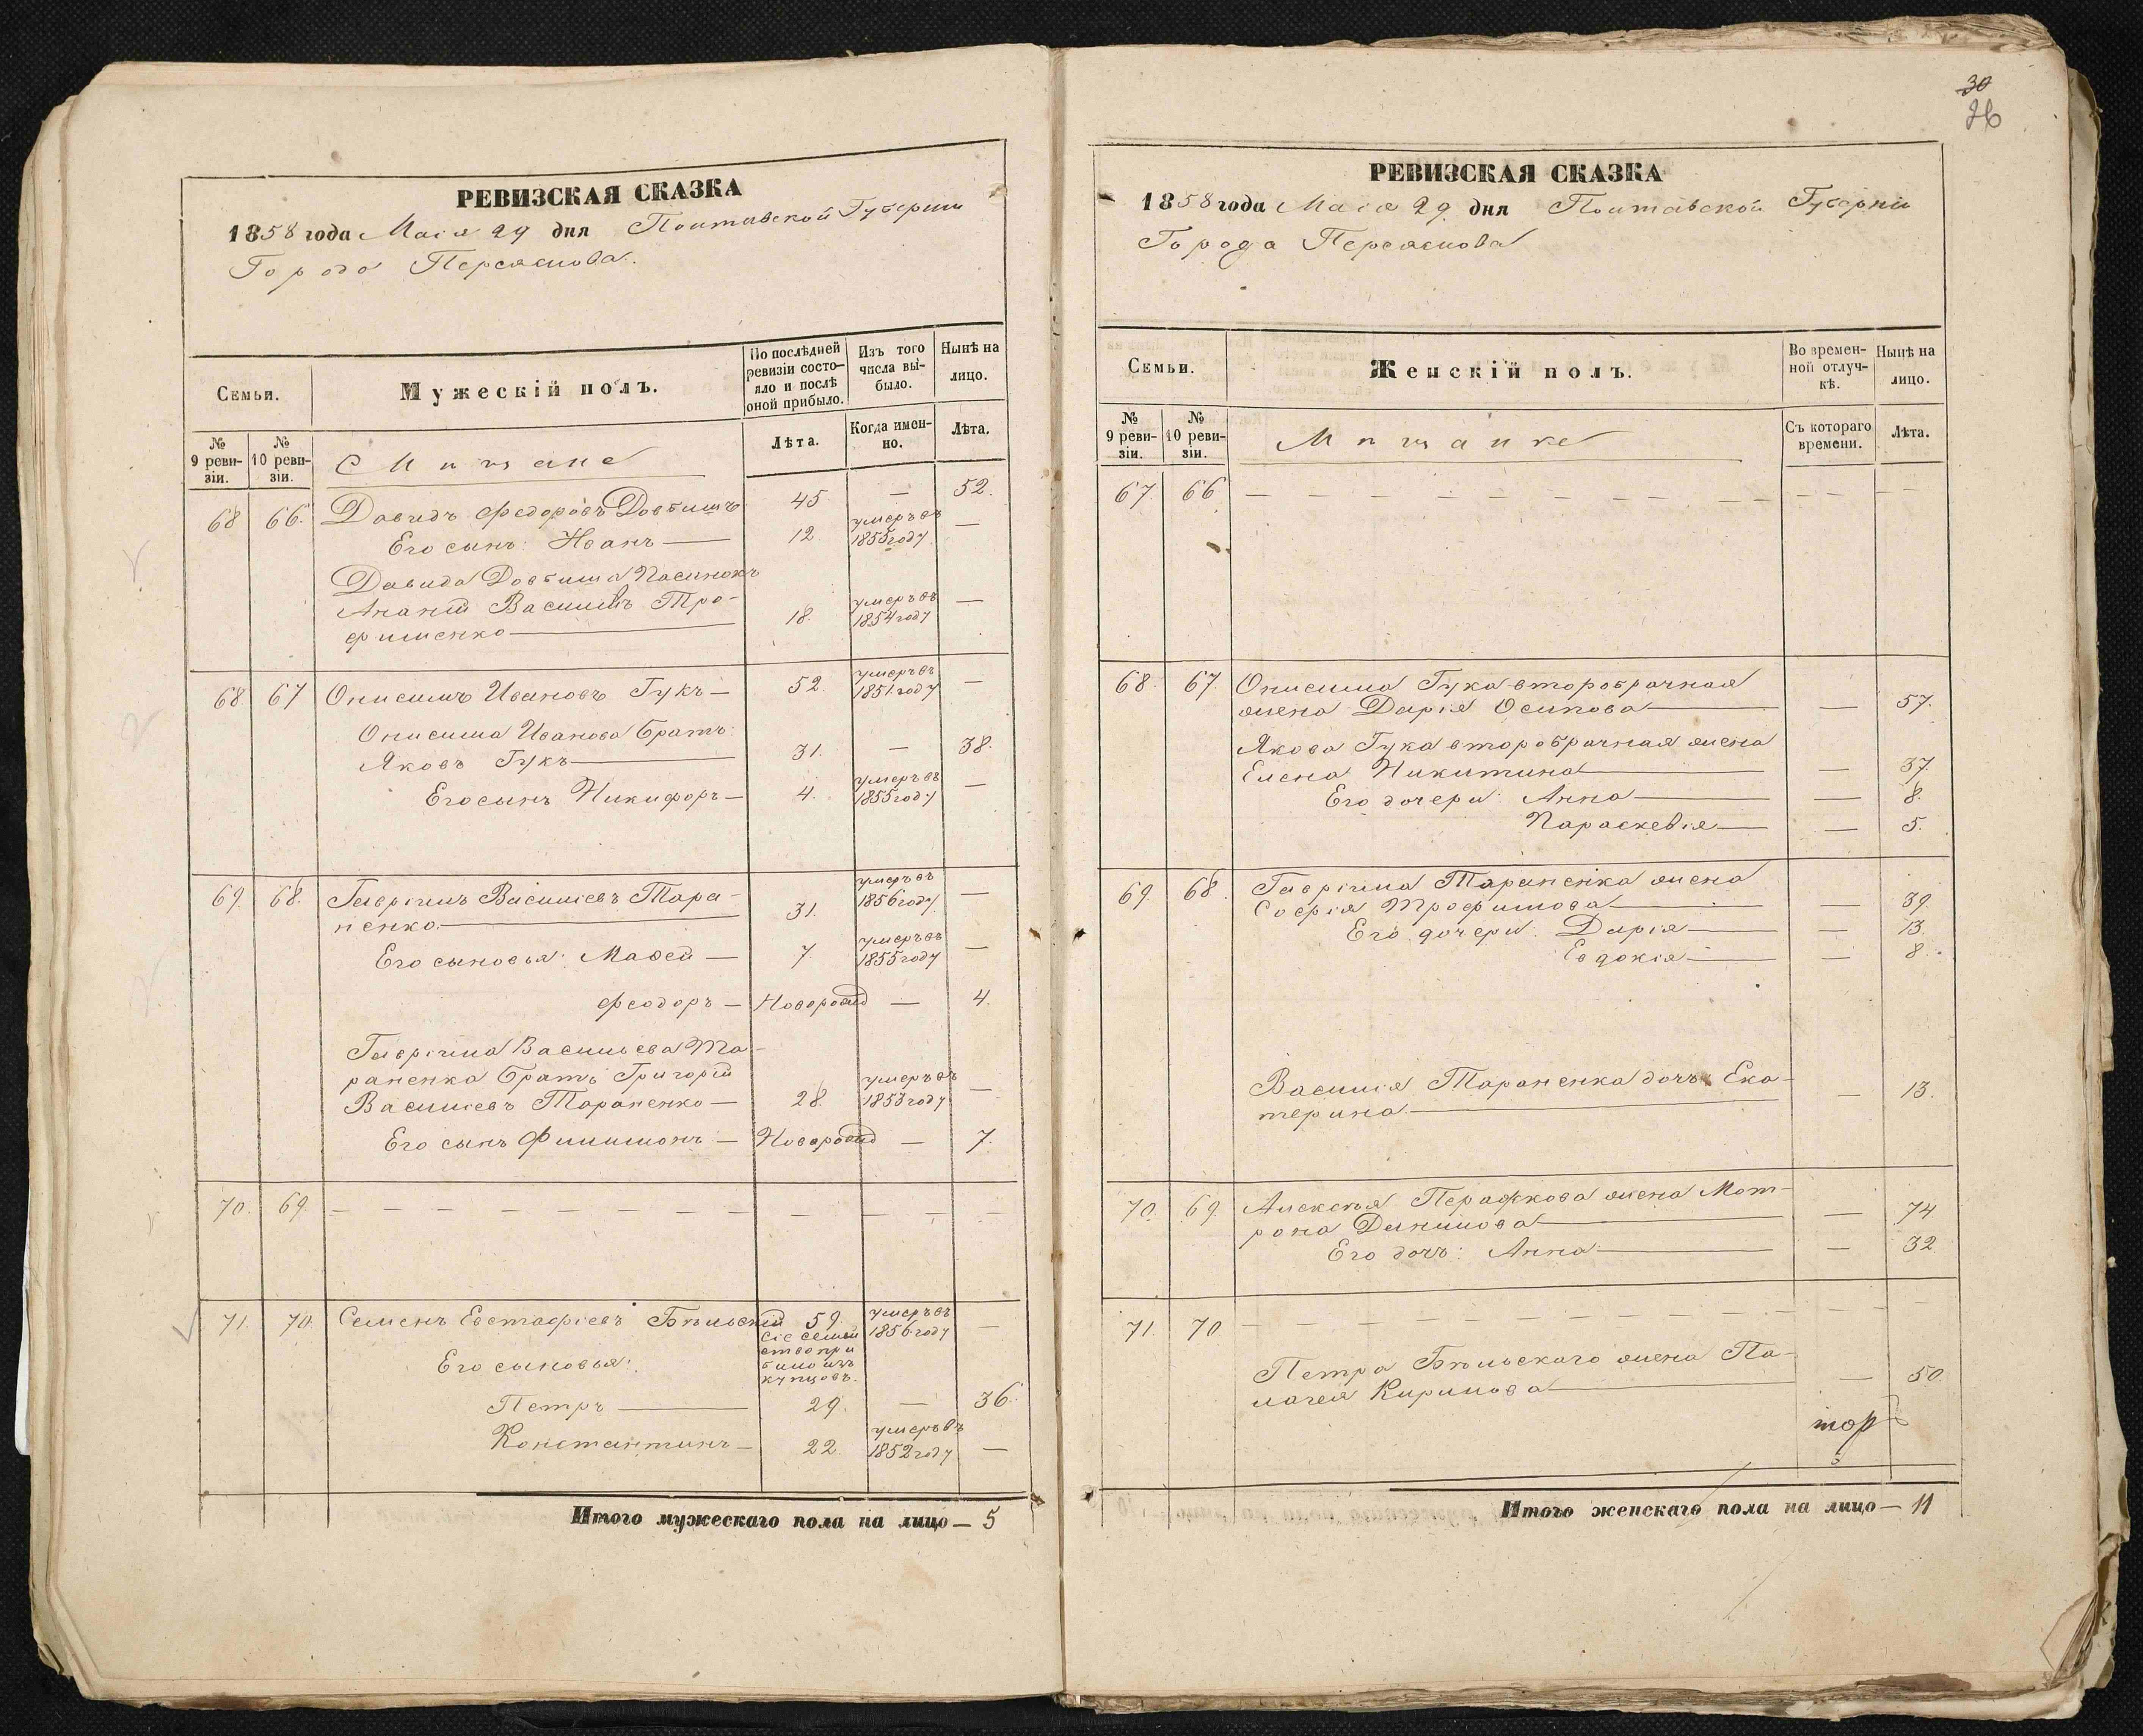 РЕВИЗСКАЯ СКАЗКА
1858 года Маія 29 дня Полтавской Губерніи
Города Переяслова.
Семьи.
Мужескій полъ.
По послѣдней ревизіи состояло и послѣ оной прибыло.
Изъ того числа выбыло.
Нынѣ на лицо.
№ 9 ревизіи.
№ 10 ревизіи.
Мѣщане
Лѣта.
Когда именно.
Лѣта.
68 66. Давидъ Федоровъ Довбишъ 45 — 52.
Его сынъ: Иванъ — 12 умеръ въ 1855 году —
Давида Довбиша Пасинокъ
Ананій Васильевъ Тро-
фименко — 18. умеръ въ 1854 году —
68 67 Онисимъ Ивановъ Гукъ — 52. умеръ въ 1851 году —
Онисима Иванова братъ:
Яковъ Гукъ — 31. — 38.
Его сынъ Никифоръ — 4. умеръ въ 1855 году —
69. 68. Гавріилъ Васильевъ Тара-
ненко — 31. умеръ въ 1856 году —
Его сыновья: Мафей — 7 умеръ въ 1855 году —
Феодоръ — Новорожд — 4.
Гавріила Васильева Та-
раненка братъ Григорій
Васильевъ Тараненко — 28. умеръ въ 1853 году —
Его сынъ Филимонъ — Новорожд — 7.
70. 69. — — — — — — — — — — —
71. 70. Семенъ Евстафіевъ Бѣльскій 59. умеръ въ 1856 году —
Сіе семей
ство при
было изъ
купцовъ.
Его сыновья:
Петръ — 29. — 36.
Константинъ — 22. умеръ въ 1852 году —
Итого мужескаго пола на лицо — 5
30
26
РЕВИЗСКАЯ СКАЗКА
1858 года Маія 29 дня Полтавской Губерніи
Города Переяслова
Семьи.
Женскій полъ.
Во временной отлучкѣ.
Нынѣ на лицо.
№ 9 ревизіи.
№ 10 ревизіи.
Мѣщанке
Съ котораго времени.
Лѣта.
67. 66 — — — — — — — — — — — —
68. 67. Онисима Гука второбрачная
жена Дарія Осипова — — 57.
Якова Гука второбрачная жена
Елена Никитина — — 37.
Его дочери: Анна — — 8.
Параскевія — — 5.
69. 68. Гавріила Тараненка жена
Софія Трофимова — — 39.
Его дочери: Дарія — — 13.
Евдокія — — 8.
Василія Тараненка дочь Ека-
терина. — — 13.
70. 69. Алексѣя Перафкова жена Мот-
рона Данилова — — 74
Его дочь: Анна — — 32.
71. 70. — — — — — — — — — — —
Петра Бѣльскаго жена Па-
лагея Кирилова — — 50
Итого женскаго пола на лицо — 11